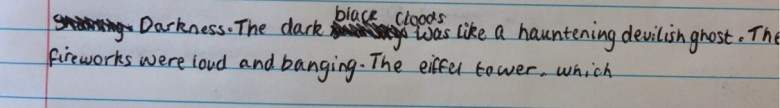 Darkness. The dark black cloods was like a hauntening devilish ghost. The
fireworks were loud and banging. The eiffel tower. which